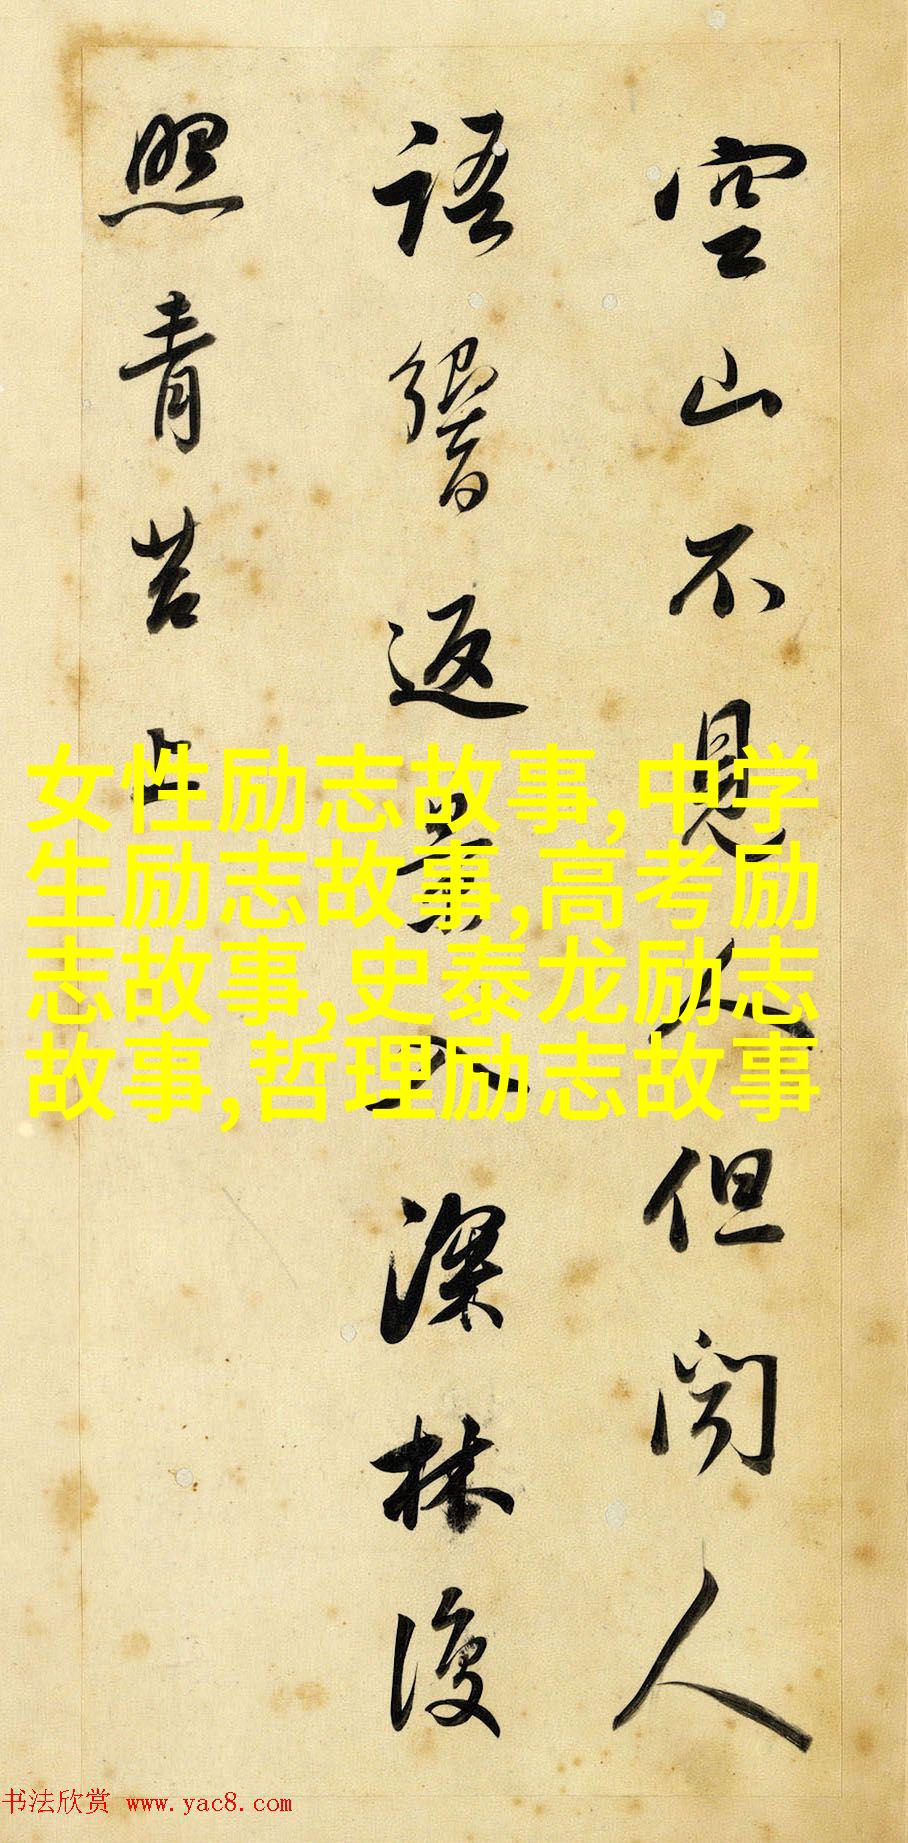 空山不見人但聞人
語響返景入深林復
照青苔上
女性励志故事,中学
生励志故事,高考励
志故事,史泰龙励志
故事,哲理励志故事
书法欣赏 www.yac8.com